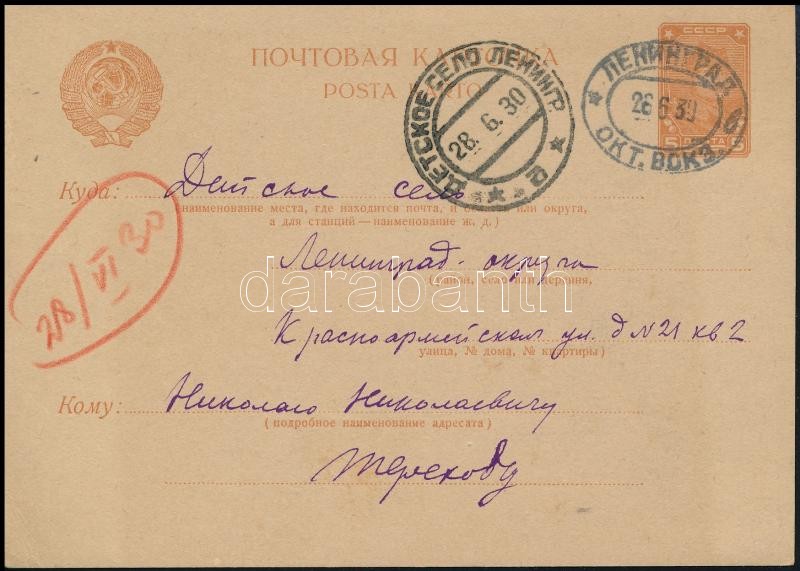 СССР
ПОЧТОВАЯ КАРТОЧКА
POSTA KARTO
ДЕТСКОЕ СЕЛО ЛЕНИНГР.
28.6.30
ЛЕНИНГРАД
26 6 30
ОКТ. ВОКЗ.
28/VI 30
Куда: Детское село
(наименование места, где находится почта, и области или округа,
а для станций—наименование ж. д.)
Ленинград. округа
(район, село или деревня,
Красноармейская ул. д N 21 кв 2
улица, № дома, № квартиры)
Кому: Николаю Николаевичу
(подробное наименование адресата)
Терехову
darabanth